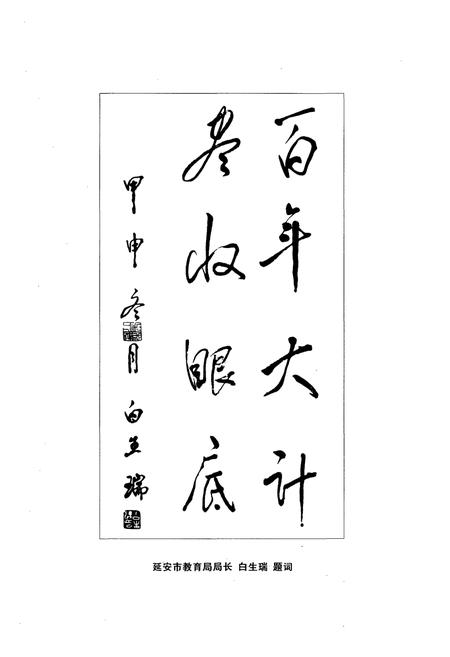 百年大计
尽收眼底
甲申冬月 白生瑞
延安市教育局局长 白生瑞 题词